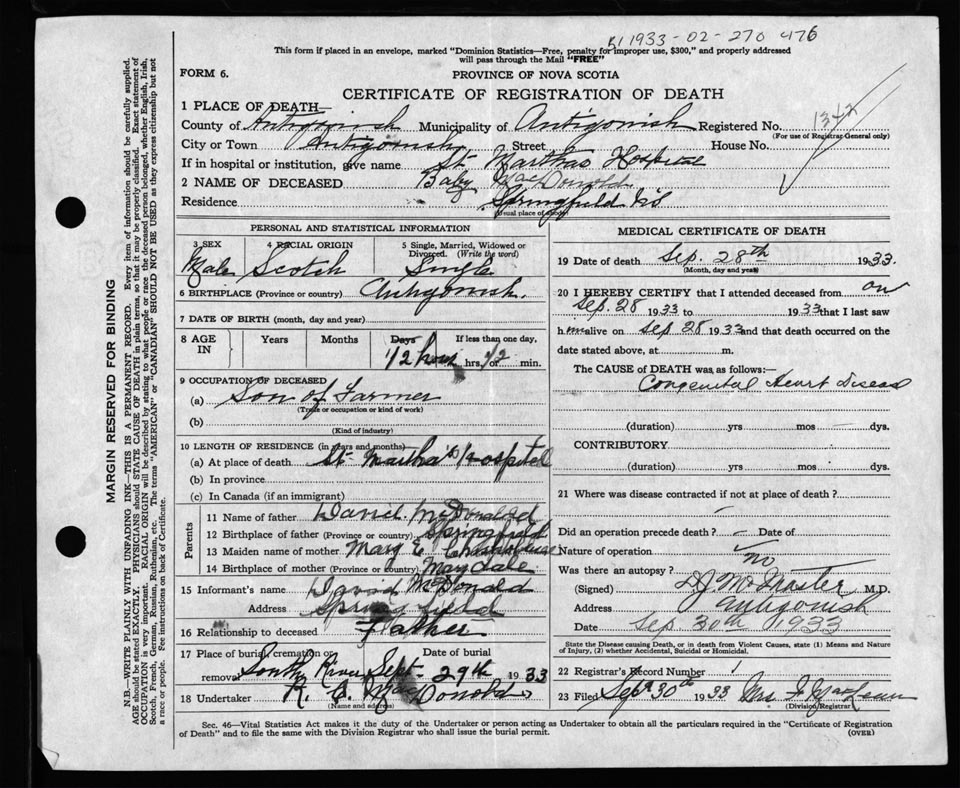 1933-02-270 476
This form if placed in an envelope, marked "Dominion Statistics—Free, penalty for improper use, $300," and properly addressed
will pass through the Mail "FREE"
FORM 6.
PROVINCE OF NOVA SCOTIA
CERTIFICATE OF REGISTRATION OF DEATH
1 PLACE OF DEATH—
County of Antigonish Municipality of Antigonish Registered No. 1342
(For use of Registrar General only)
City or Town Antigonish Street House No.
If in hospital or institution, give name St Marthas Hospital
2 NAME OF DECEASED Baby MacDonald
Residence Springfield NS
(Usual place of abode)
PERSONAL AND STATISTICAL INFORMATION
3 SEX 4 RACIAL ORIGIN 5 Single, Married, Widowed or Divorced. (Write the word)
Male Scotch Single
6 BIRTHPLACE (Province or country) Antigonish.
7 DATE OF BIRTH (month, day and year)
8 AGE IN Years Months Days If less than one day,
1/2 hour hrs. or 1/2 min.
9 OCCUPATION OF DECEASED
(a) Son of Farmer
(Trade or occupation or kind of work)
(b)
(Kind of industry)
10 LENGTH OF RESIDENCE (in years and months)
(a) At place of death St Martha's Hospital
(b) In province
(c) In Canada (if an immigrant)
Parents
11 Name of father David McDonald
12 Birthplace of father (Province or country) Springfield
13 Maiden name of mother Mary E
14 Birthplace of mother (Province or country) Marydale
15 Informant's name David McDonald
Address Springfield
16 Relationship to deceased Father
17 Place of burial, cremation or removal Date of burial
South River Sept 29th 1933
18 Undertaker R. C. MacDonald
(Name and address)
MEDICAL CERTIFICATE OF DEATH
19 Date of death Sep. 28th 1933.
(Month, day and year)
20 I HEREBY CERTIFY that I attended deceased from on
Sep. 28 1933 to 1933 that I last saw
h im alive on Sep 28 1933 and that death occurred on the
date stated above, at m.
The CAUSE of DEATH was as follows:—
Congenital Heart Disease
(duration) yrs mos dys.
CONTRIBUTORY
(duration) yrs. mos dys.
21 Where was disease contracted if not at place of death?
Did an operation precede death? — Date of
Nature of operation
Was there an autopsy? no
(Signed) M.D.
Address Antigonish
Date Sep 30th 1933
State the Disease causing Death, or in death from Violent Causes, state (1) Means and Nature
of Injury, (2) whether Accidental, Suicidal or Homicidal.
22 Registrar's Record Number 1
23 Filed Sept 30th 1933 Mrs
(Division Registrar)
Sec. 46—Vital Statistics Act makes it the duty of the Undertaker or person acting as Undertaker to obtain all the particulars required in the "Certificate of Registration
of Death" and to file the same with the Division Registrar who shall issue the burial permit.
(OVER)
MARGIN RESERVED FOR BINDING
N.B.—WRITE PLAINLY WITH UNFADING INK—THIS IS A PERMANENT RECORD. Every item of information should be carefully supplied.
AGE should be stated EXACTLY. PHYSICIANS should STATE CAUSE OF DEATH in plain terms, so that it may be properly classified. Exact statement of
OCCUPATION is very important. RACIAL ORIGIN will be described by stating to what people or race the deceased person belonged, whether English, Irish,
Scotch, French, German, Russian, Ruthenian, etc. The terms "AMERICAN" or "CANADIAN" SHOULD NOT BE USED as they express citizenship but not
a race or people. See instructions on back of Certificate.